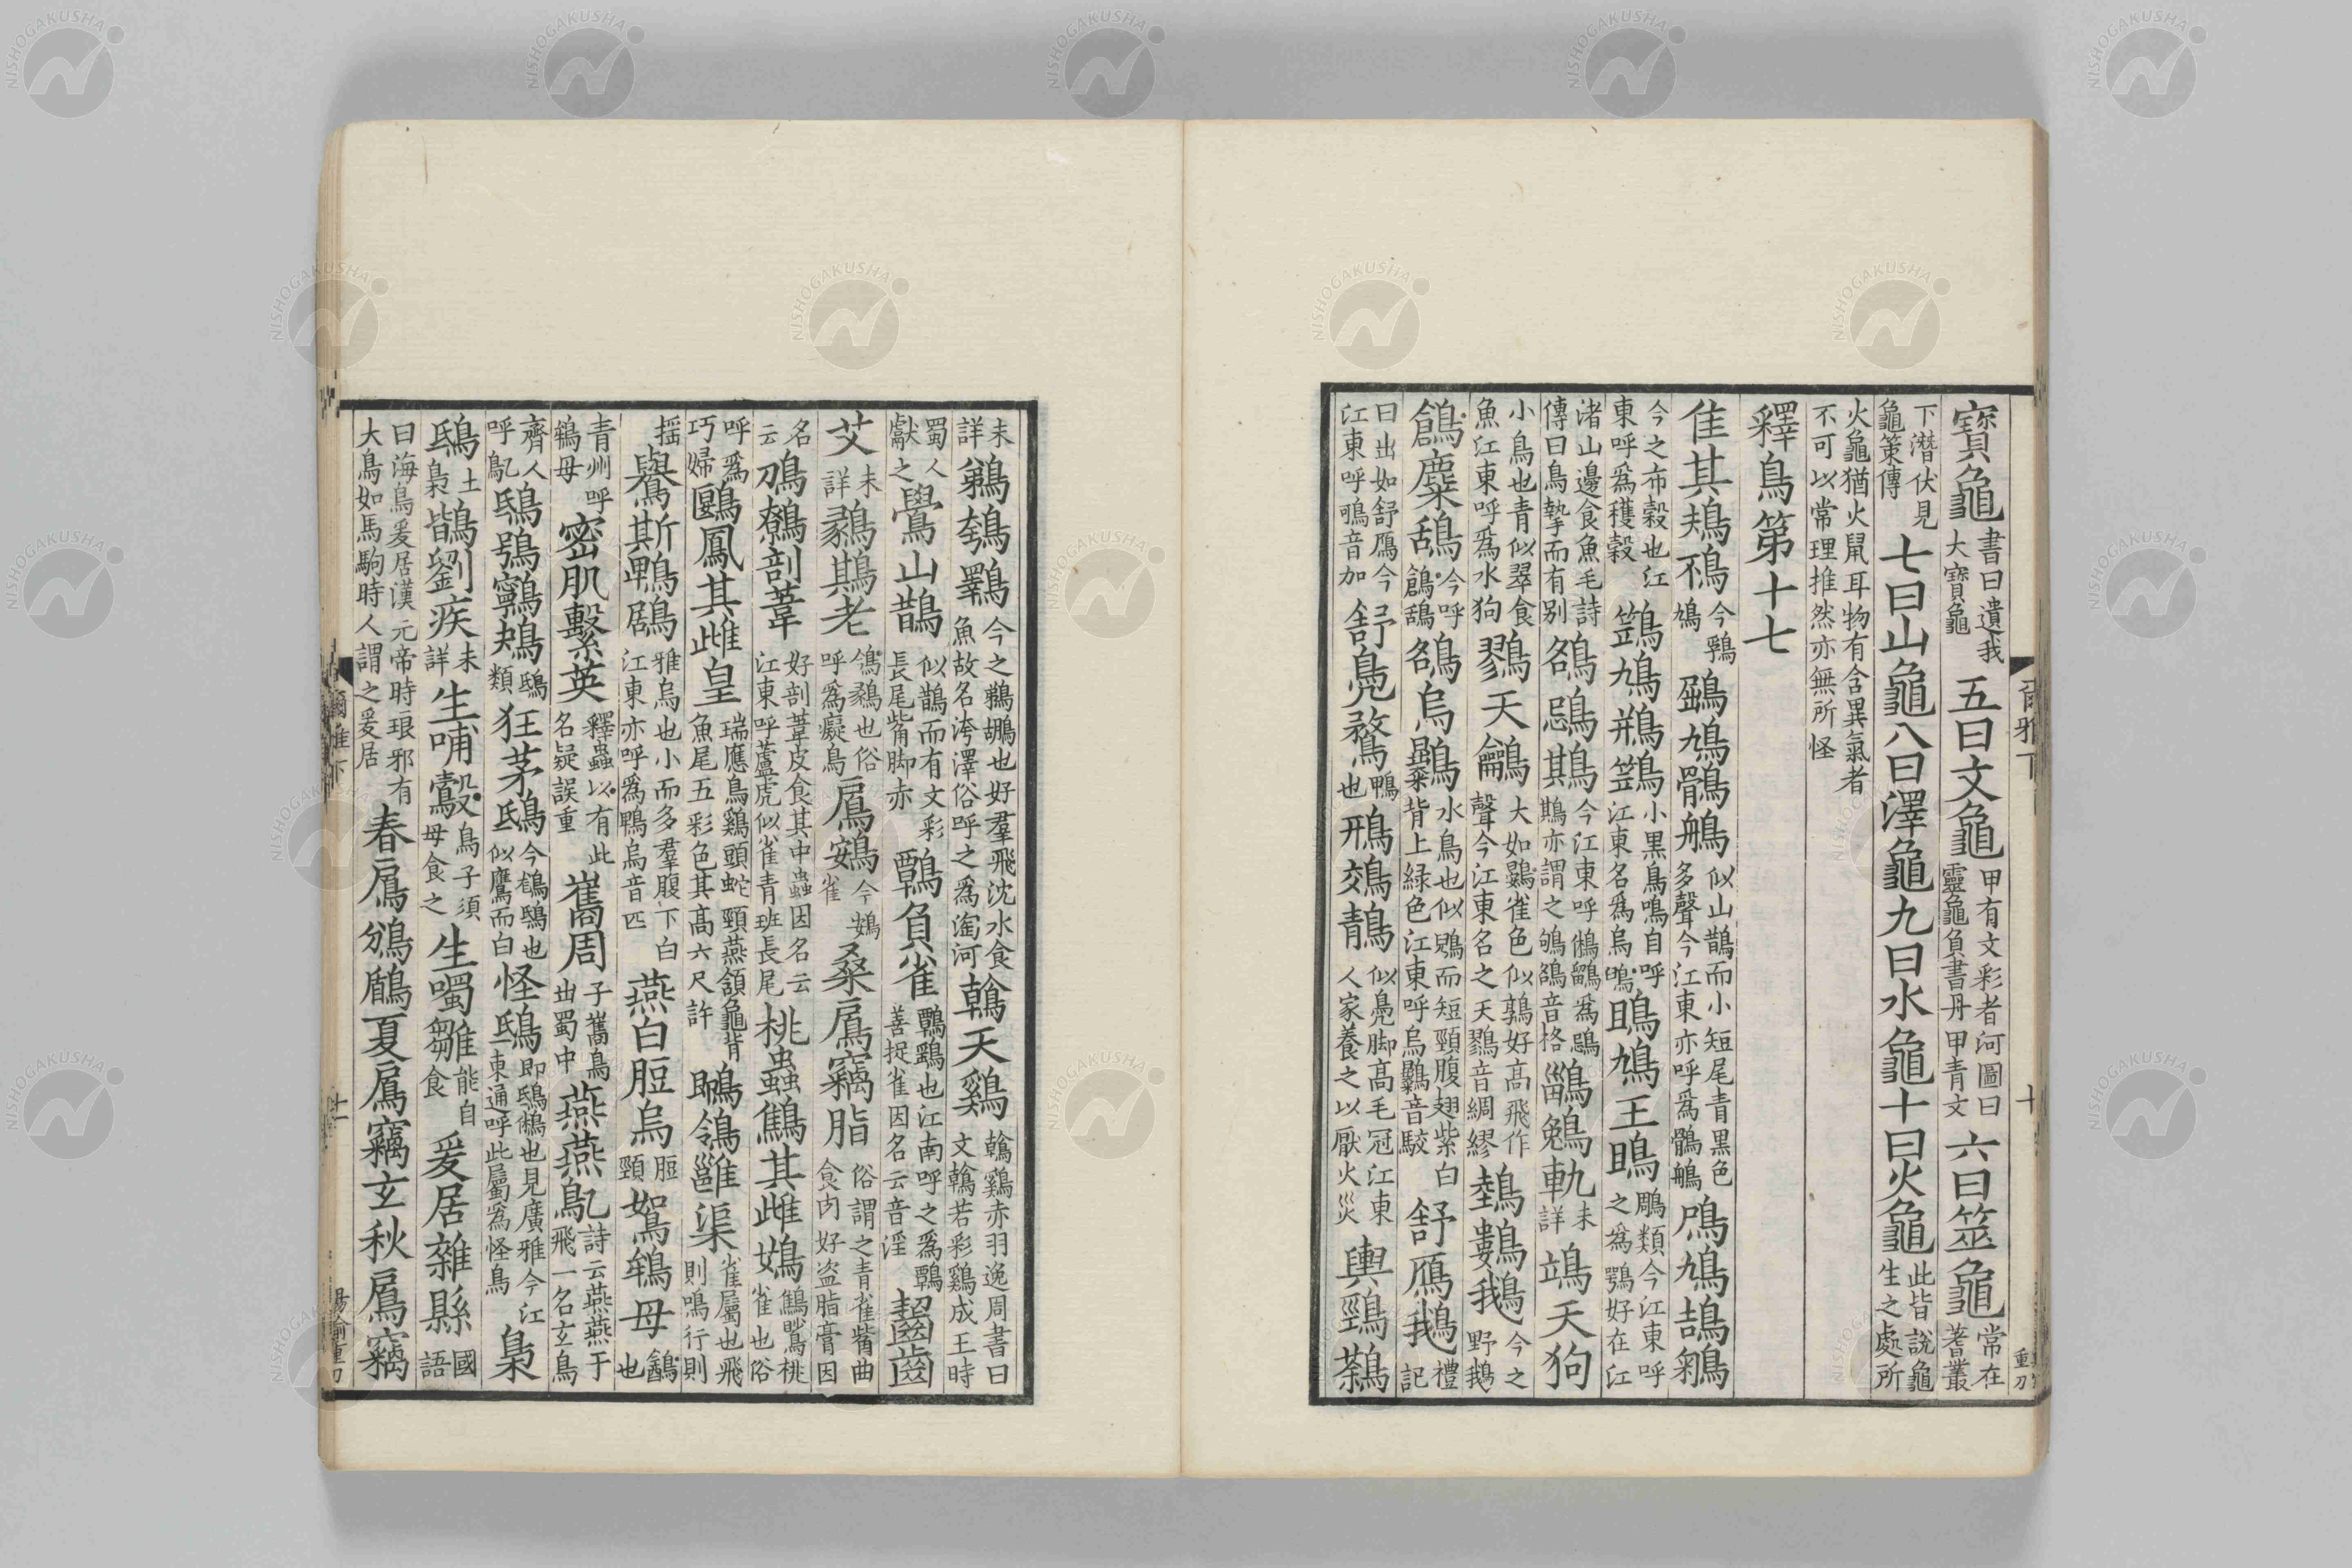 寶龜書曰遺我大寶龜五曰文龜甲有文彩者河圖曰靈龜負書丹甲青文六曰筮龜常在蓍叢
下潛伏見龜策傳七曰山龜八曰澤龜九曰水龜十曰火龜此皆說龜生之處所
火龜猶火鼠耳物有含異氣者不可以常理推然亦無所怪
釋鳥第十七
隹其鳺鴀今鳩鶌鳩鶻鵃似山鵲而小短尾青黑色多聲今江東亦呼爲鶻鵃鳲鳩鴶鵴
今之布穀也江東呼爲穫穀鷑鳩鵧鷑小黑鳥鳴自呼江東名爲烏鴡鳩王鴡鵰類今江東呼之爲鶚好在江
渚山邊食魚毛詩傳曰鳥摯而有別鵅鵋䳢今江東呼鵂鶹爲鵋䳢亦謂之鴝鵅音格鶅鵵軌未詳鴗天狗
小鳥也青似翠食魚江東呼爲水狗鷚天鸙大如鷃雀色似鶉好高飛作聲今江東名之天鷚音綢繆鵱鷜鵝今之野鵝
鶬麋鴰今呼鶬鴰鵅烏鸔水鳥也似鶂而短頸腹翅紫白背上綠色江東呼烏鸔音駮舒鴈鵝禮記
曰出如舒鴈今江東呼鴚音加舒鳧鶩鴨也鳽鵁鶄似鳧脚高毛冠江東人家養之以厭火災輿鵛鷋
爾雅下
未詳鵜鴮鸅今之鵜鶘也好羣飛沈水食魚故名洿澤俗呼之爲淘河鶾天雞鶾雞赤羽逸周書曰文鶾若彩雞成王時
蜀人獻之鷽山鵲似鵲而有文彩長尾觜脚赤鷣負雀鷣鷂也江南呼之爲鷣善捉雀因名云音淫齧齒
艾未詳鶨䳢老鴿鶨也俗呼爲癡鳥鳸鴳今鴳雀桑鳸竊脂俗謂之青雀觜曲食肉好盜脂膏因
名云鳭鷯剖葦好剖葦皮食其中蟲因名云江東呼蘆虎似雀青班長尾桃蟲鷦其雌鴱鷦䳟桃雀也俗
呼爲巧婦鶠鳳其雌皇瑞應鳥雞頭蛇頸燕頷龜背魚尾五彩色其高六尺許䳭鴒雝渠雀屬也飛則鳴行則
揺鸒斯鵯鶋雅烏也小而多羣腹下白江東亦呼爲鵯烏音匹燕白脰烏脰頸鴽鴾母䳺也
青州呼鴾母密肌繫英釋蟲以有此名疑誤重巂周子巂鳥出蜀中燕燕鳦詩云燕燕于飛一名玄鳥
齊人呼鳦鴟鴞鸋鴂鴟類狂茅鴟今鵵鴟也似鷹而白怪鴟即鴟鵂也見廣雅今江東通呼此屬爲怪鳥梟
鴟土梟鶛劉疾未詳生哺鷇鳥子須母食之生噣雛能自食爰居雜縣國語
曰海鳥爰居漢元帝時琅邪有大鳥如馬駒時人謂之爰居春鳸鳻鶞夏鳸竊玄秋鳸竊
爾雅下
NISHOGAKUSHA